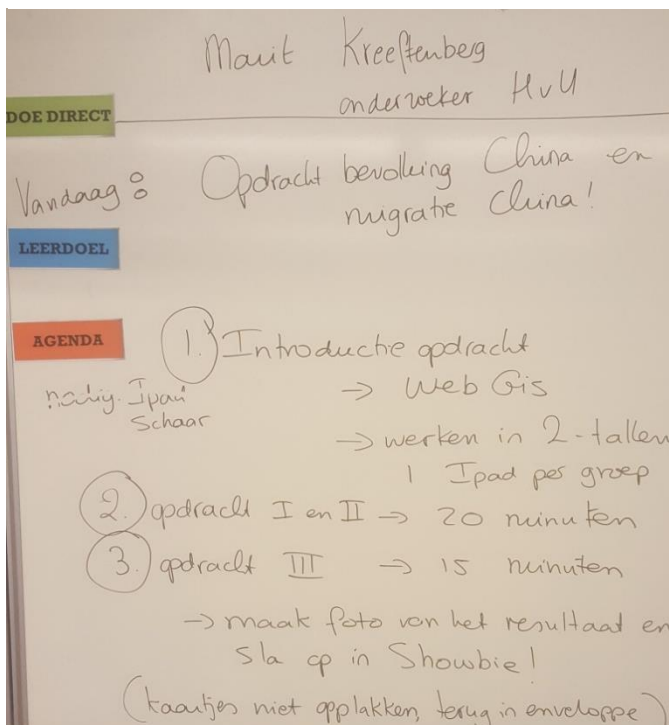 Marit Kreeftenberg
onderzoeker HvU
DOE DIRECT
Vandaag: Opdracht bevolking China en
migratie China!
LEERDOEL
AGENDA
1. Introductie opdracht
nodig: Ipad
Schaar
→ Web Gis
→ werken in 2-tallen
1 Ipad per groep
2. opdracht I en II → 20 minuten
3. opdracht III → 15 minuten
→ maak foto van het resultaat en
sla op in Showbie!
(kaartjes niet opplakken, terug in enveloppe)